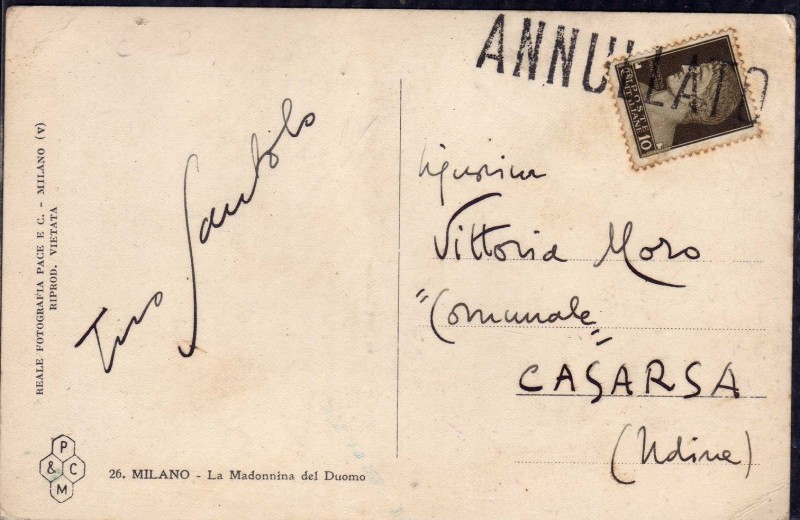 ANNULLATO
POSTE ITALIANE 10
Tino Santolo
Signorina
Vittoria Moro
"Comunale"
CASARSA
(Udine)
REALE FOTOGRAFIA PACE E C. - MILANO (V)
RIPROD. VIETATA
P & C M
26. MILANO - La Madonnina del Duomo